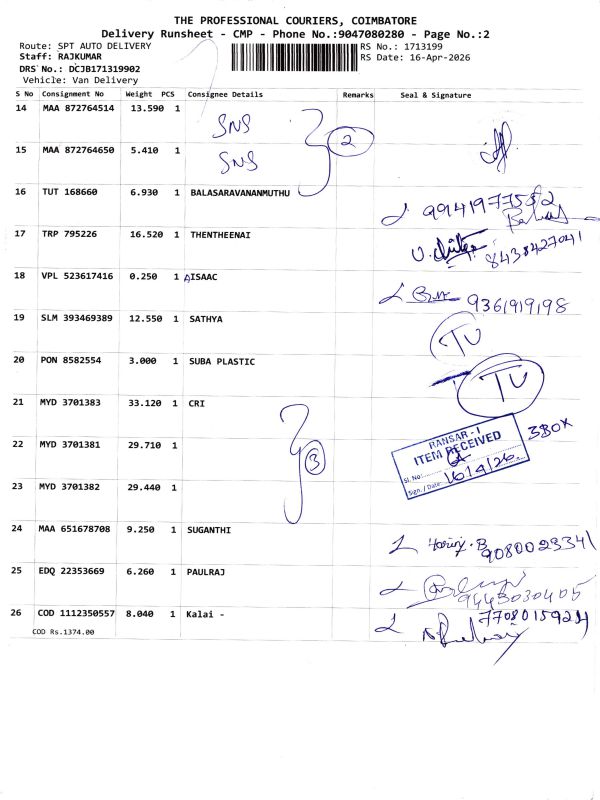 THE PROFESSIONAL COURIERS, COIMBATORE
Delivery Runsheet - CMP - Phone No.:9047080280 - Page No.:2
Route: SPT AUTO DELIVERY
RS No.: 1713199
Staff: RAJKUMAR
RS Date: 16-Apr-2026
DRS No.: DCJB171319902
Vehicle: Van Delivery
S No Consignment No Weight PCS Consignee Details Remarks Seal & Signature
14 MAA 872764514 13.590 1 SNS
2
15 MAA 872764650 5.410 1 SNS
16 TUT 168660 6.930 1 BALASARAVANANMUTHU
17 TRP 795226 16.520 1 THENTHEENAI 8438427041
18 VPL 523617416 0.250 1 AISAAC 9361919198
19 SLM 393469389 12.550 1 SATHYA TU
20 PON 8582554 3.000 1 SUBA PLASTIC TU
21 MYD 3701383 33.120 1 CRI
RANSAR-I
ITEM RECEIVED
3BOX
22 MYD 3701381 29.710 1
3
Sl. No:
Sign. / Date: 16/4/26
23 MYD 3701382 29.440 1
24 MAA 651678708 9.250 1 SUGANTHI 9080023341
25 EDQ 22353669 6.260 1 PAULRAJ 9443030405
26 COD 1112350557 8.040 1 Kalai -
COD Rs.1374.00